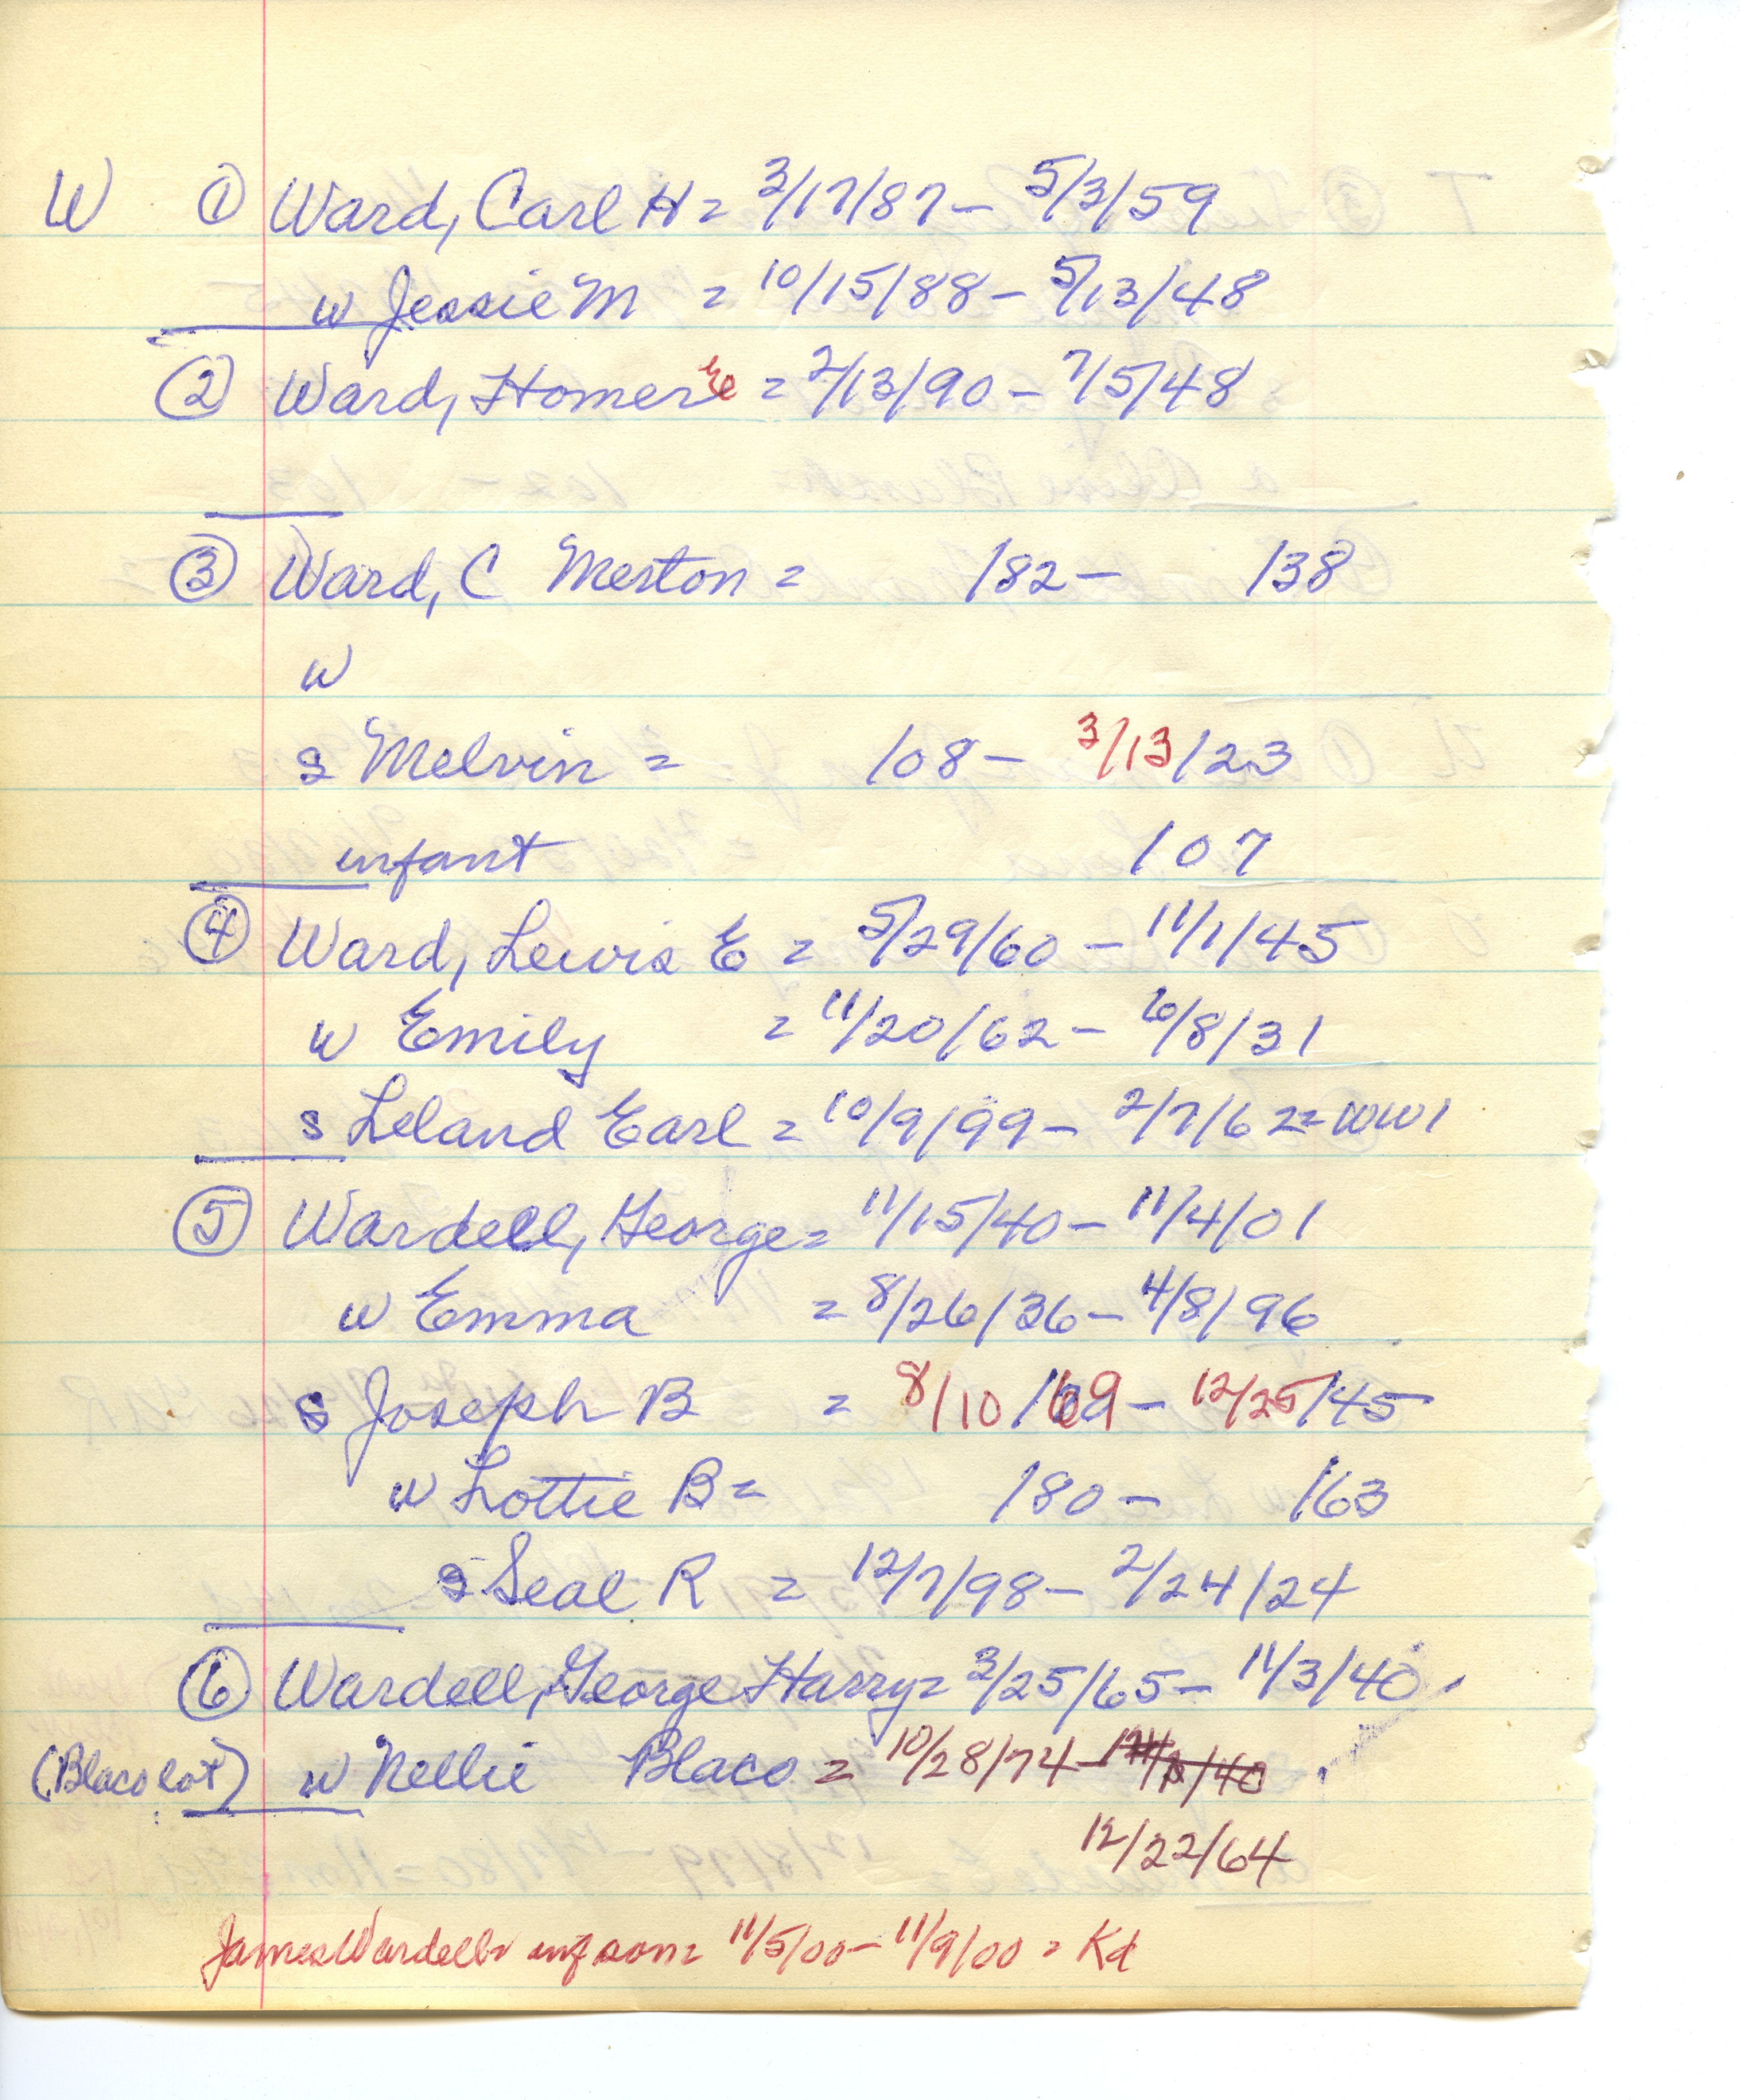 W ① Ward, Carl H = 3/17/87 - 5/3/59
w Jessie M = 10/15/88 - 5/13/48
② Ward, Homer E = 2/13/90 - 7/5/48
③ Ward, C Merton = /82 - /38
w
s Melvin = /08 - 3/13/23
infant /07
④ Ward, Lewis E = 5/29/60 - 11/1/45
w Emily = 11/20/62 - 6/8/31
s Leland Earl = 10/9/99 - 2/7/62 = WW1
⑤ Wardell, George = 11/15/40 - 11/4/01
w Emma = 8/26/36 - 4/8/96
s Joseph B = 8/10/69 - 12/25/45
w Lottie B = /80 - /63
s Seal R = 12/7/98 - 2/24/24
⑥ Wardell, George Harry = 3/25/65 - 11/3/40
(Blaco lot) w Nellie Blaco = 10/28/74 -
12/22/64
James Wardell inf son = 11/5/00 - 11/9/00 = Kd